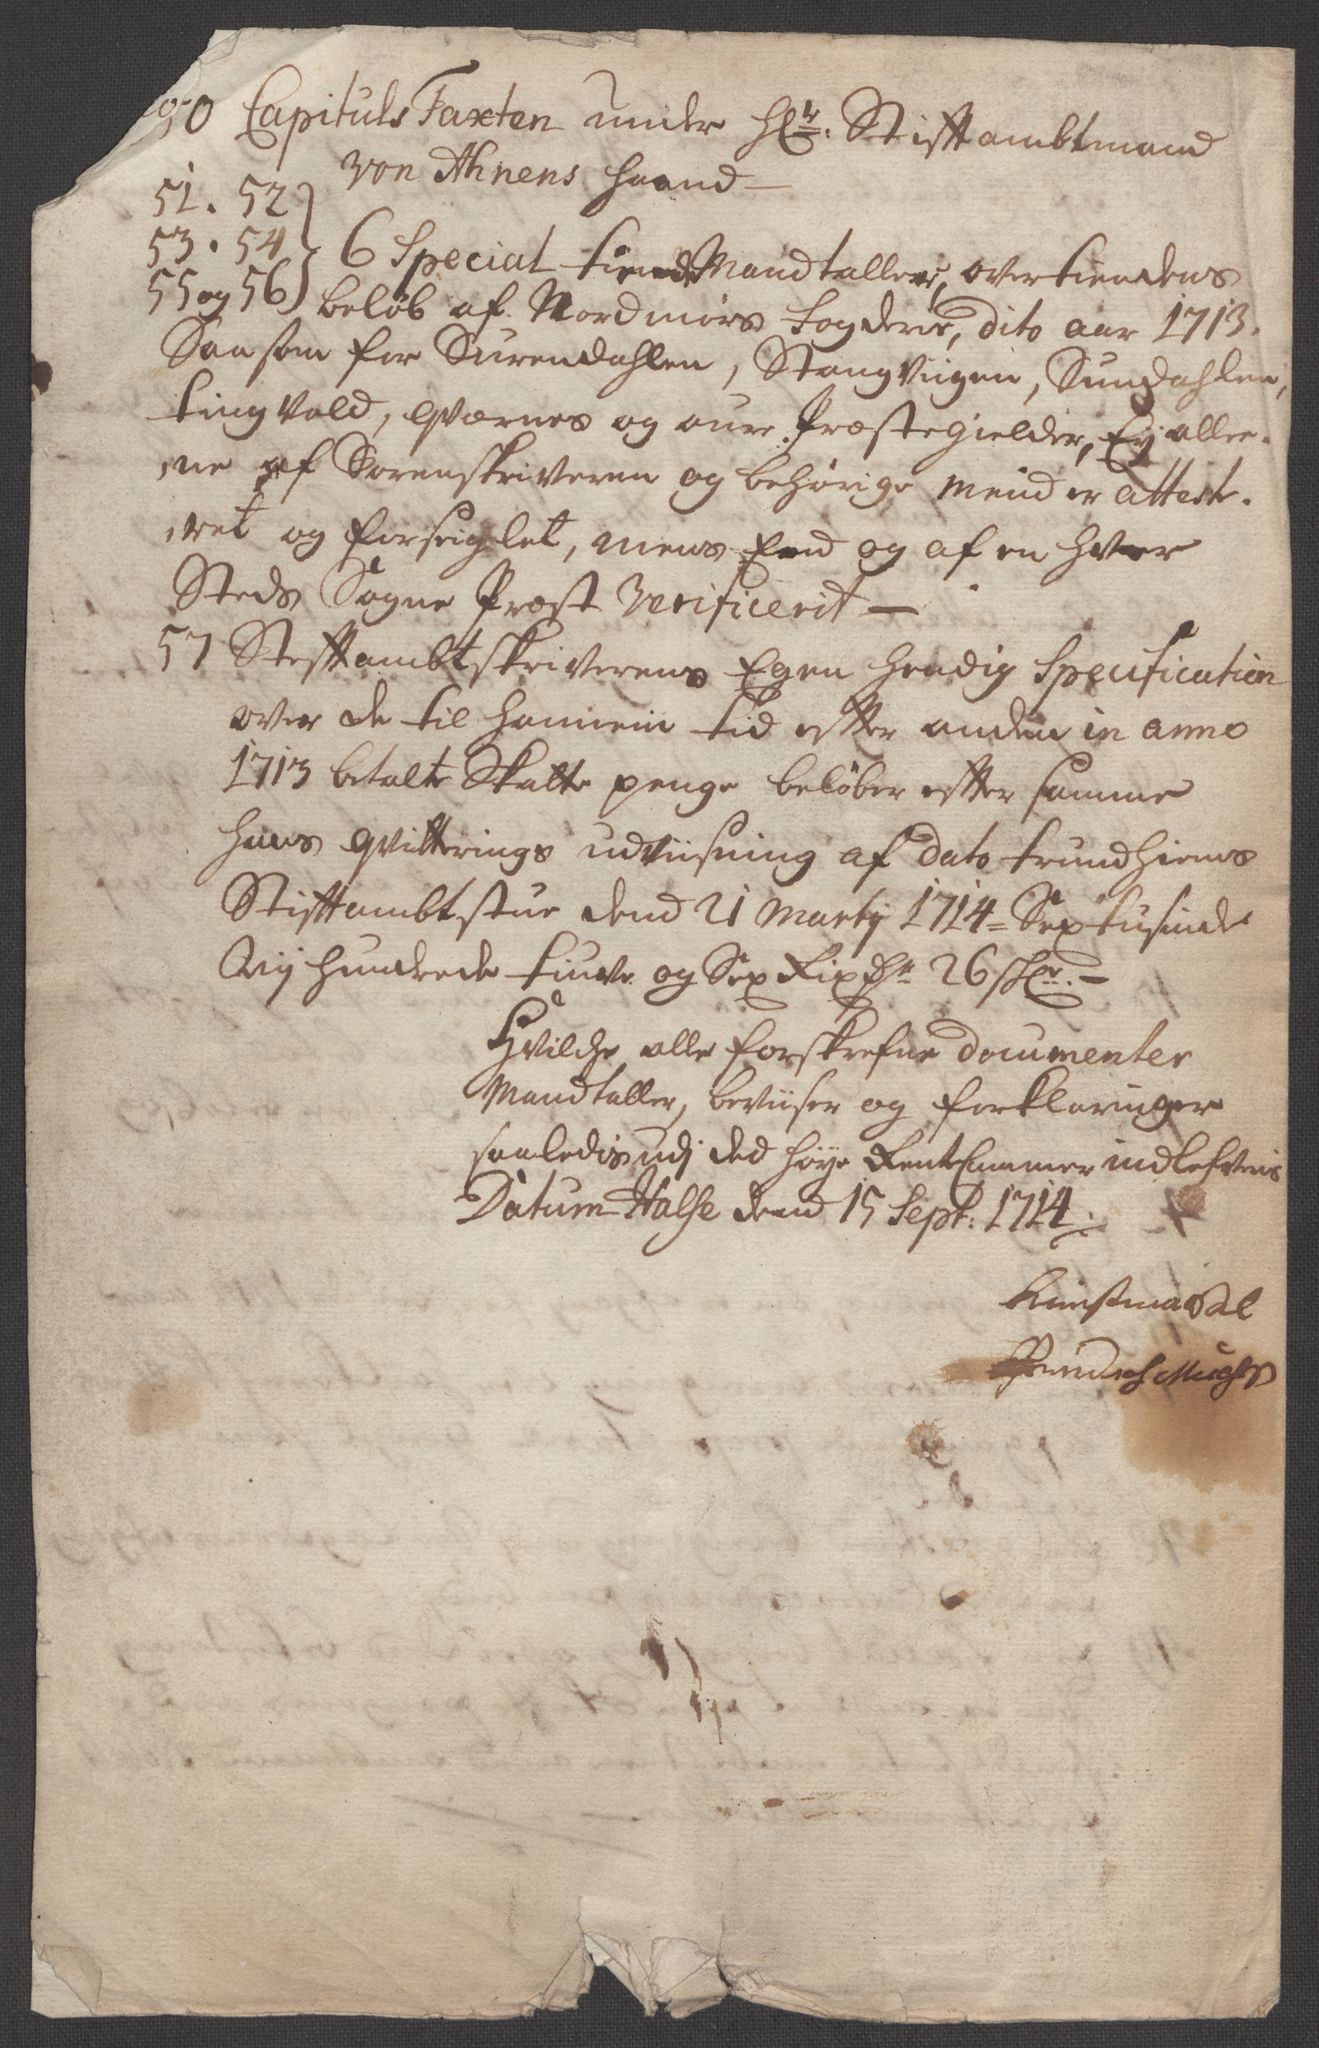 50 Capituls Taxten under Hr. Stiftambtmand
von Ahnens haand
51. 52
53. 54 6 Special tiende Mandtaller, over tiendens
55 og 56 beløb af Nordmørs fogderie, dito aar 1713.
Saasom for Surendahlen, Stangviigen, Sundahlen,
tingvold, qværnes og aure Præstegielder, Ey allee-
ne af Sorenskriveren og behørige mend er atteste-
ret og forseiglet, mens End og af en hver
Steds Sogne Præst verificerit
57 Stiftambtskriverens Egen hendig Specification
over de til hannem tid efter anden in anno
1713 betalte Skatte penge beløber efter samme
hans qvitterings udviisning af dato trundhiems
Stiftambtstue dend 21 Martij 1714 = Sex tusinde
hundrede tiuve og Sex Rixdr 26 skr.
Hvilche alle forskrefne documenter
Mandtaller, beviiser og forklaringer
saaledis udj ded høye RentCammer indlefveris
Datum Halse dend 15 Sept: 1714.